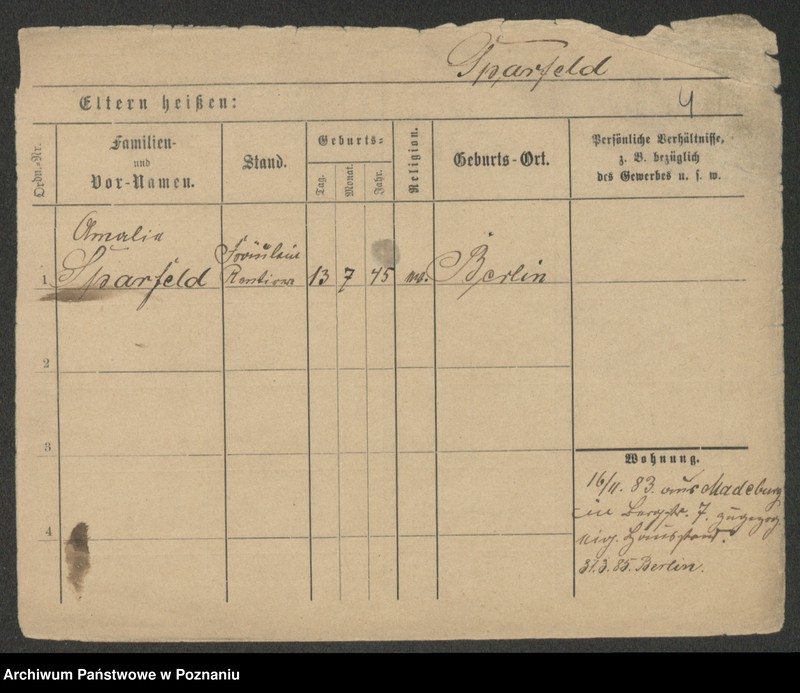 Sparfeld
Eltern heißen:
4
Ordn.-Nr.
Familien-
und
Vor-Namen.
Stand.
Geburts-
Tag.
Monat.
Jahr.
Religion.
Geburts-Ort.
Persönliche Verhältnisse,
z. B. bezüglich
des Gewerbes u. s. w.
1
Amalie
Sparfeld
Fräulein
13
7
45
Berlin
2
3
4
Wohnung.
83. aus Madeburg
in Bergstr. 7. zugezog
eig. Hausstand.
31.3.85. Berlin.
Archiwum Państwowe w Poznaniu